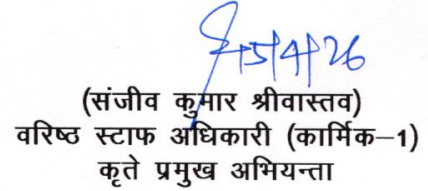 15/4/26
(संजीव कुमार श्रीवास्तव)
वरिष्ठ स्टाफ अधिकारी (कार्मिक–1)
कृते प्रमुख अभियन्ता